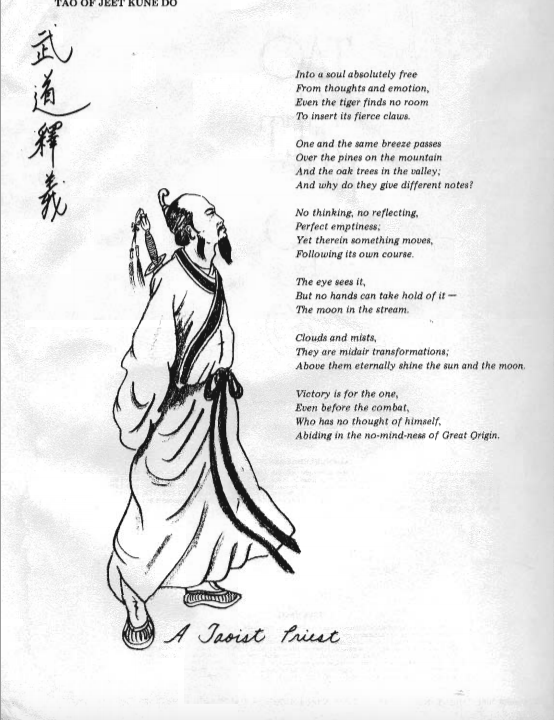 TAO OF JEET KUNE DO
武道釋義
Into a soul absolutely free
From thoughts and emotion,
Even the tiger finds no room
To insert its fierce claws.
One and the same breeze passes
Over the pines on the mountain
And the oak trees in the valley;
And why do they give different notes?
No thinking, no reflecting,
Perfect emptiness;
Yet therein something moves,
Following its own course.
The eye sees it,
But no hands can take hold of it —
The moon in the stream.
Clouds and mists,
They are midair transformations;
Above them eternally shine the sun and the moon.
Victory is for the one,
Even before the combat,
Who has no thought of himself,
Abiding in the no-mind-ness of Great Origin.
A Taoist Priest